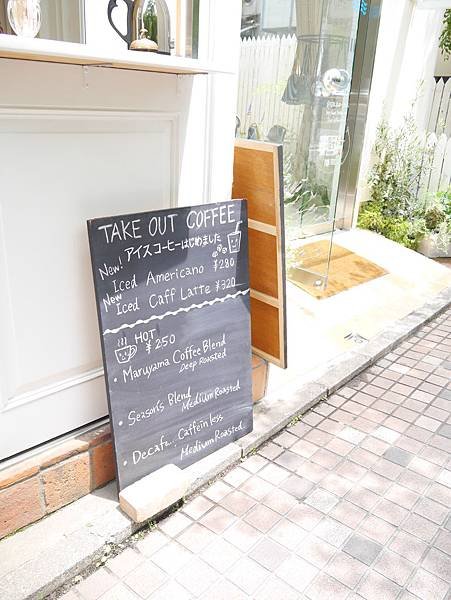 TAKE OUT COFFEE
アイスコーヒーはじめました
New! Iced Americano ¥280
New Iced Caff Latte ¥320
HOT
¥250
• Maruyama Coffee Blend
Deep Roasted
• Season's Blend
Medium Roasted
• Decafe... Caffeinless
Medium Roasted